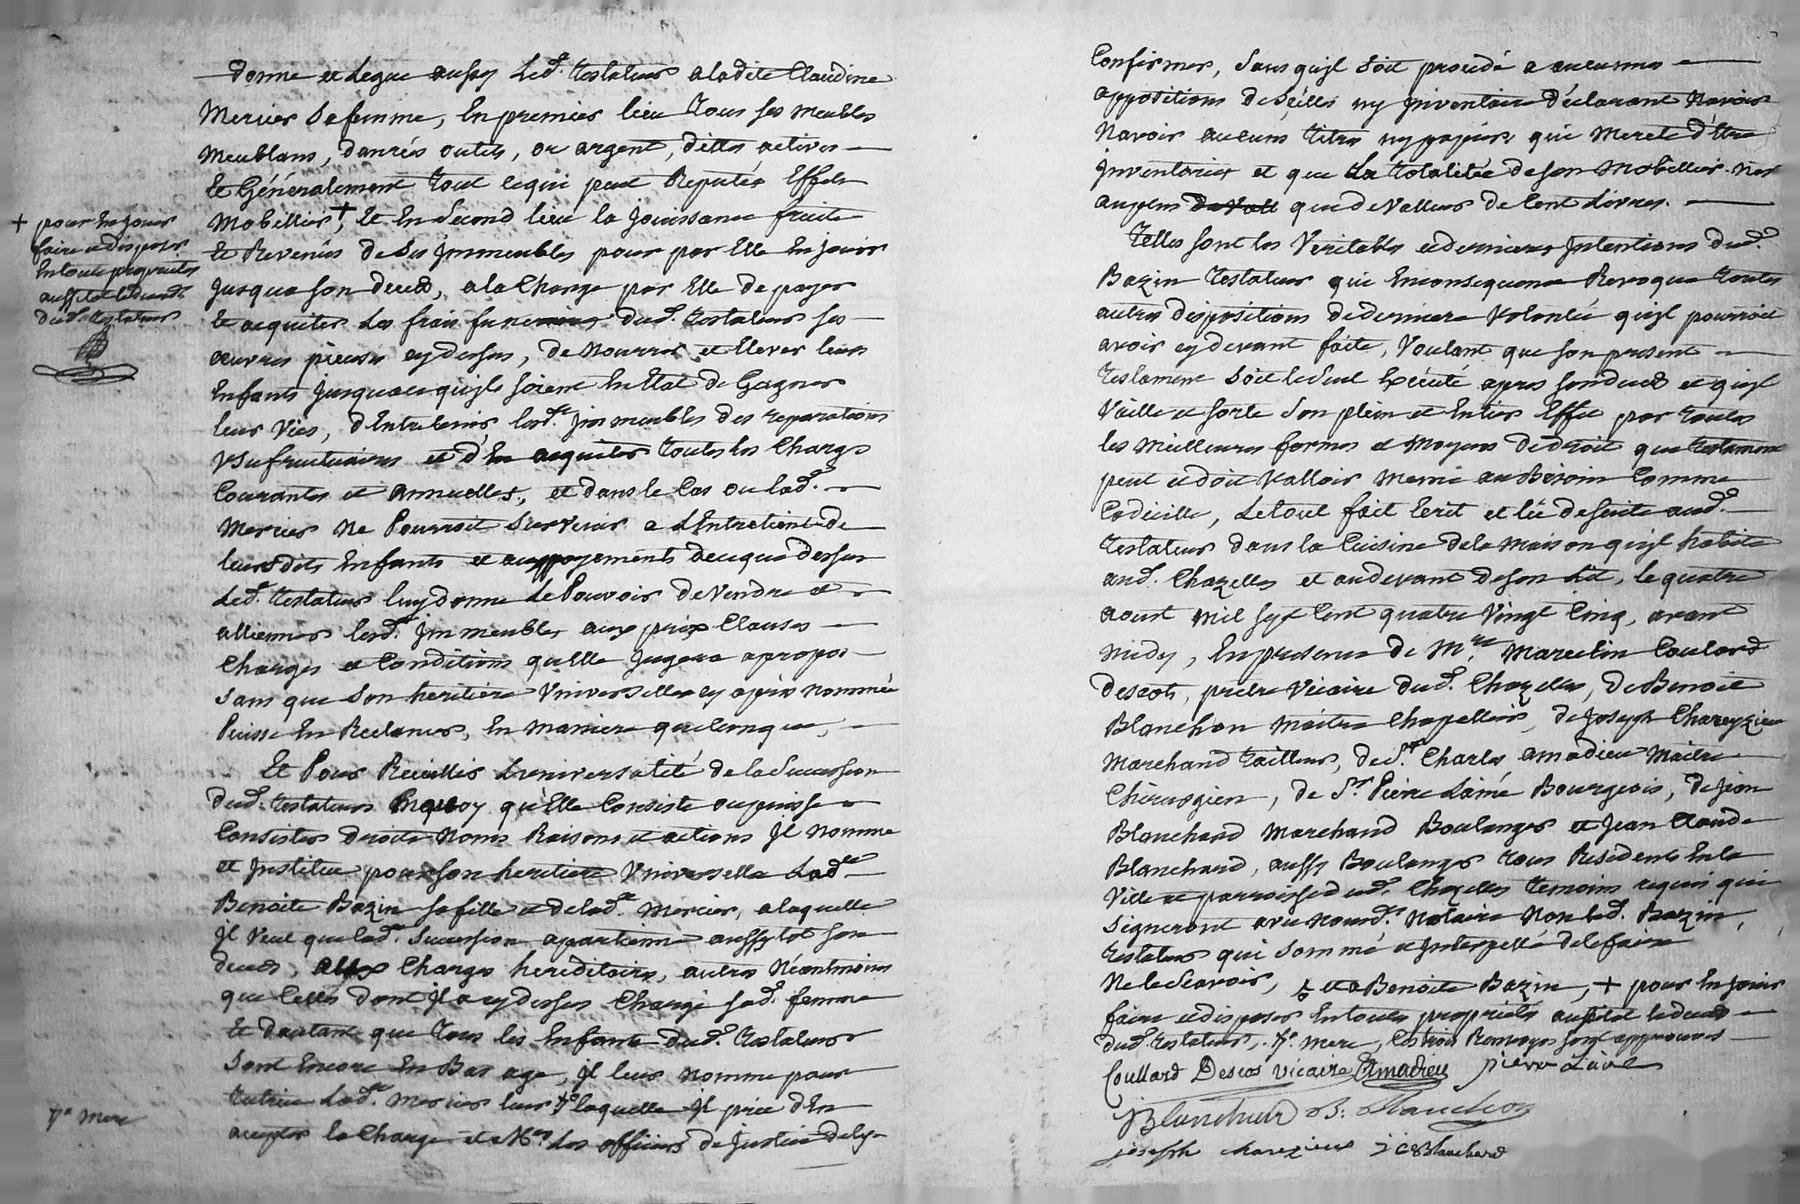 donne et Legue aussy Led. testateur a ladite Claudine
Mercier sa femme, En premier lieu tous ses meubles
meublans, danrés outils, or argent, dettes actives
Et Généralement tout cequi peut Reputér Effets
Mobilliers + Et En Second lieu la Jouissance fruits
Et Revenus de Ses Jmmeubles pour par Elle En jouir
Jusqua son deces, a la Charge par Elle de payer
Et acquiter Les frais funeraires dud. testateur ses
œuvres pieuses cydessus, de nourrir et Elever leurs
Enfants Jusquace quils soient En Etat de Gagner
leurs Vies, d'Entretenir lesd. Jmmeubles des reparations
Vsufructuaires et d'En acquiter toutes les Charges
Courantes et Annuelles, et dans le Cas ou lad.
Mercier Ne Pourroit Survenir a L'Entretient de
leursdits Enfants et au payements de ceque dessus
Led. testateur luy donne Le Pouvoir de Vendre et
alliener lesd. Jmmeubles aux prix Clauses
Charges et Conditions qu'Elle Jugera apropos
Sans que Son heritiere Vniverselle cy après nommée
Puisse En Reclamer, En maniere quelconque,
Et Pour Recuillir L'universalité de la Succession
dud. testateur Enquoy qu'Elle Consiste ou puisse
Consister droits Noms Raisons et actions Jl nomme
et Jnstitue pour son heritiere Vniverselle Lad.
Benoite Bazin sa fille et delad. Mercier, a laquelle
Jl Veut que lad. Succession apartienne aussytot son
deces, aux Charges hereditaires, autres Néantmoins
que Celles dont Jl a cydessus Chargé sad. femme
Et d'autant que tous les Enfants dud. testateur
Sont Encore En Bas age, Jl leur nomme pour
tutrice Lad. Mercier leur 7e laquelle Jl prie d'En
accepter la Charge et a Mrs Les officiers de Justice dely
+ pour En Jouir
faire et disposer
En toute proprietés
aussitot le deces
dud. testateur
7e mere
Confirmer, Sans qu'jl Soit procedé a aucunes
appositions de Scéllés ny Jnventaire déclarant Navoir
Navoir aucuns titres ny papiers qui Merite d'être
Jnventoriés et que La totalitée de son Mobillier nes
au plus que de Valleur de Cent Livres.
Telles sont les Veritables et dernieres Jntentions dud.
Bazin testateur qui En consequence Revoque toutes
autres dispositions de derniere Volontée qu'jl pourroit
avoir cy devant faite, Voulant que son present
testament Soit le Seul Exécuté apres son deces et qu'jl
Vaille et sorte Son plein et Entier Effet par toutes
les Meilleures formes et Moyens de droit que testament
peut et doit Valloir Meme au Besoin Comme
Codicille, Le tout fait Ecrit et lû de suite aud.
testateur dans la Cuisine de la maison qu'jl habite
aud. Chazelles et au devant de son Lit, le quatre
aout Mil Sept Cent quatre Vingt Cinq, avant
midy, En presence de Mre Marcelin Coulard
descots, pretre Vicaire dud. Chazelles, de Benoit
Blanchon Maitre Chapellier, de Joseph Chareyzieu
Marchand tailleur, de Sr Charles amadieu Maitre
Chirurgien, de Sr Pierre Lainé Bourgeois, de Jean
Blanchard Marchand Boulanger et Jean Claude
Blanchard, aussy Boulanger tous Residents En la
Ville et parroisse dud. Chazelles temoins requis qui
Signeront avec nous d. Notaire Non led. Bazin,
testateur qui Sommé et Jnterpellé de le faire
Ne le Scavoir, et a Benoite Bazin, + pour En jouir
faire et disposer En toutes proprietés aussitot le deces
dud. testateur, 7e mere, les trois Renvoyes sont approuvés
Coullard Descos vicaire Amadieu pierre Lainé
J Blanchard B. Blanchon
joseph charezieux J C Blanchard